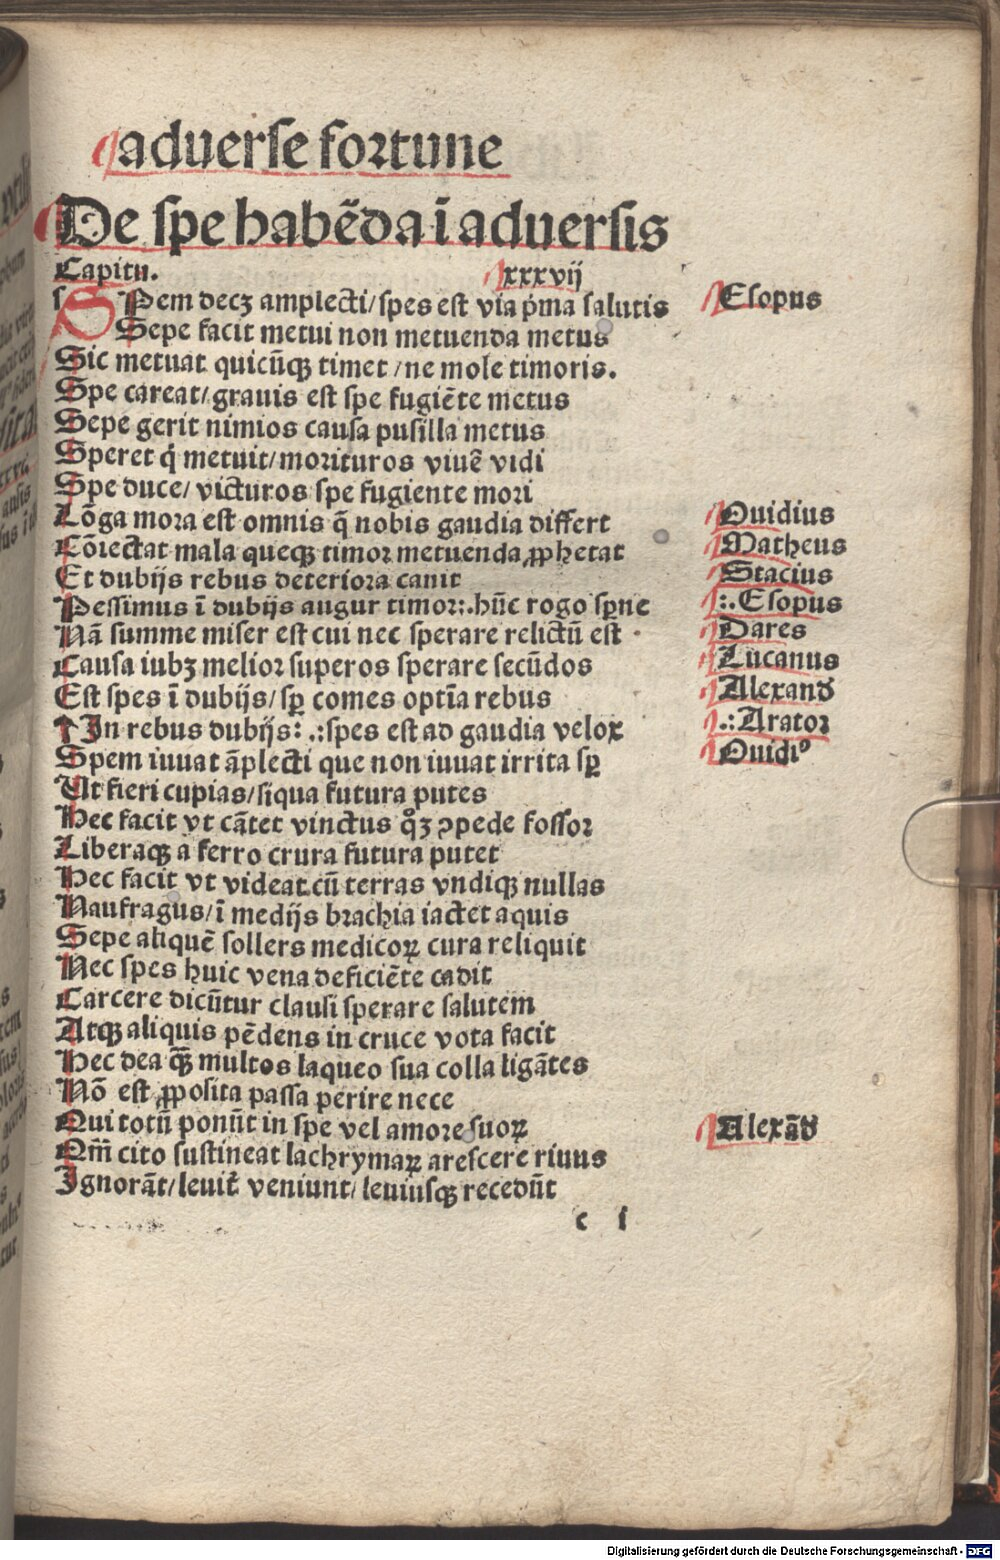 aduerse fortune
De spe habēda ī aduersis
Capitu. xxxvij
SPem decꝫ amplecti/spes est via pͥma salutis Esopus
Sepe facit metui non metuenda metus
Sic metuat quicūqꝫ timet/ne mole timoris.
Spe careat/grauis est spe fugiēte metus
Sepe gerit nimios causa pusilla metus
Speret qͥ metuit/morituros viuē vidi
Spe duce/victuros spe fugiente mori
Lōga mora est omnis q̄ nobis gaudia differt Ouidius
Cōiectat mala queqꝫ timor metuenda ꝓphetat Matheus
Et dubijs rebus deteriora canit Stacius
Pessimus ī dubijs augur timor:.hūc rogo sꝑne :.Esopus
Nā summe miser est cui nec sperare relictū est Dares
Causa iubꝫ melior superos sperare secūdos Lucanus
Est spes ī dubijs/sꝑ comes optīa rebus Alexand
In rebus dubijs: .:spes est ad gaudia velox .:Arator
Spem iuuat āplecti que non iuuat irrita sꝑ Ouidiꝰ
Ut fieri cupias/siqua futura putes
Hec facit vt cātet vinctus qͦꝫ ꝯpede fossor
Liberaqꝫ a ferro crura futura putet
Hec facit vt videat cū terras vndiqꝫ nullas
Naufragus/ī medijs brachia iactet aquis
Sepe aliquē sollers medicoꝝ cura reliquit
Nec spes huic vena deficiēte cadit
Carcere dicūtur clausi sperare salutem
Atqꝫ aliquis pēdens in cruce vota facit
Hec dea qͣꝫ multos laqueo sua colla ligātes
Nō est ꝓposita passa perire nece
Qui totū ponūt in spe vel amore suoꝝ Alexād
Qm̄ cito sustineat lachrymaꝝ arescere riuus
Ignorāt/leuit̄ veniunt/leuiusqꝫ recedūt
c i
Digitalisierung gefördert durch die Deutsche Forschungsgemeinschaft - DFG